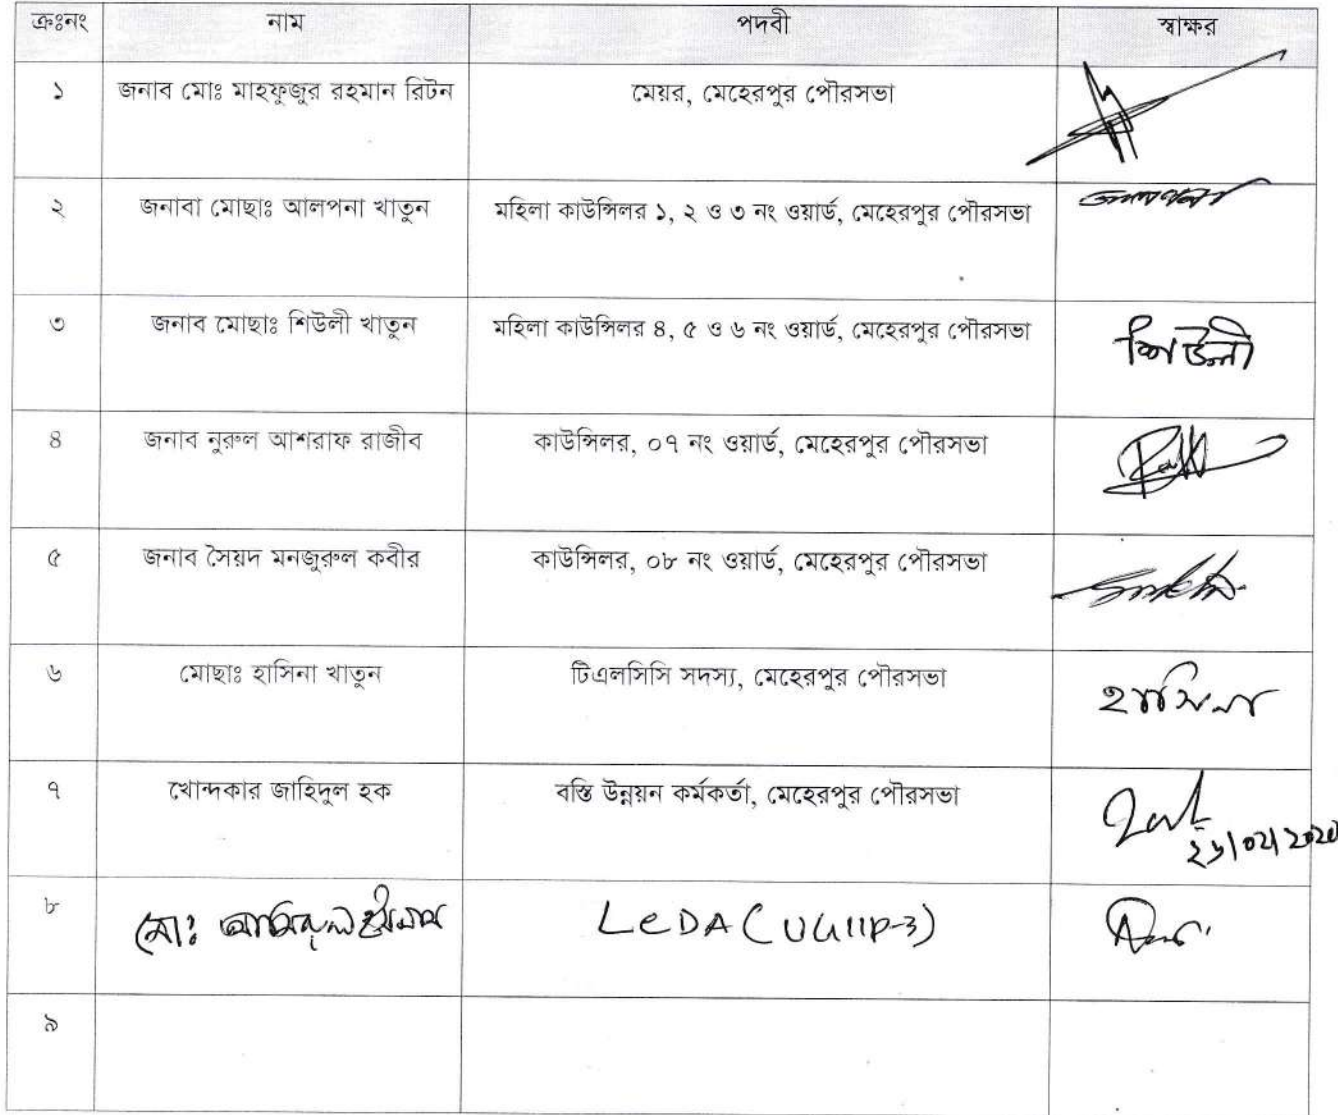 ক্রঃনং নাম পদবী স্বাক্ষর
১ জনাব মোঃ মাহফুজুর রহমান রিটন মেয়র, মেহেরপুর পৌরসভা
২ জনাবা মোছাঃ আলপনা খাতুন মহিলা কাউন্সিলর ১, ২ ও ৩ নং ওয়ার্ড, মেহেরপুর পৌরসভা
৩ জনাব মোছাঃ শিউলী খাতুন মহিলা কাউন্সিলর ৪, ৫ ও ৬ নং ওয়ার্ড, মেহেরপুর পৌরসভা শিউলী
৪ জনাব নুরুল আশরাফ রাজীব কাউন্সিলর, ০৭ নং ওয়ার্ড, মেহেরপুর পৌরসভা
৫ জনাব সৈয়দ মনজুরুল কবীর কাউন্সিলর, ০৮ নং ওয়ার্ড, মেহেরপুর পৌরসভা
৬ মোছাঃ হাসিনা খাতুন টিএলসিসি সদস্য, মেহেরপুর পৌরসভা হাসিনা
৭ খোন্দকার জাহিদুল হক বস্তি উন্নয়ন কর্মকর্তা, মেহেরপুর পৌরসভা
৮ মোঃ LeDA (UGIIP-3)
৯